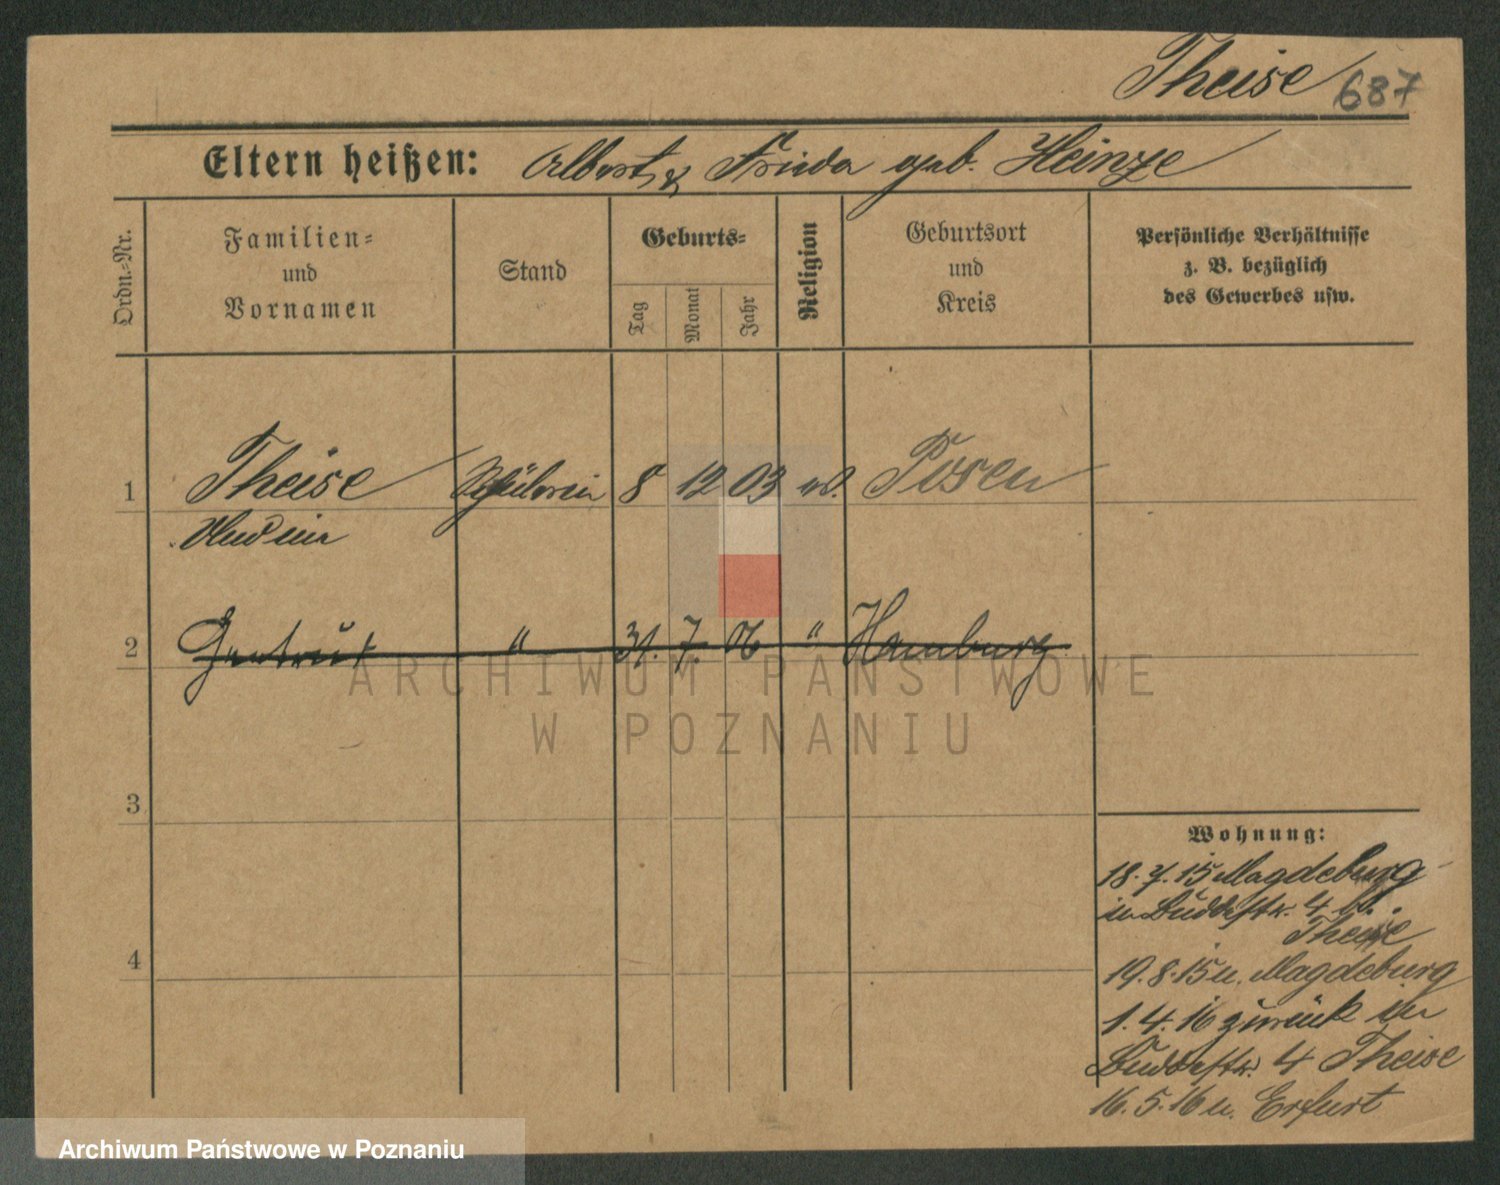 Theise 687
Eltern heißen: Albert & Frieda geb. Heinze
Ordn.-Nr.
Familien-
und
Vornamen
Stand
Geburts-
Tag
Monat
Jahr
Religion
Geburtsort
und
Kreis
Persönliche Verhältnisse
z. B. bezüglich
des Gewerbes usw.
1 Theise Schülerin 8 12 03 ev. Posen
2 Gertrud " 31. 7. 06 " Hamburg
3
4
Wohnung:
18. 7. 15 Magdeburg
in Buddestr. 4 bei
Theise
19. 8. 15 n. Magdeburg
1. 4. 16 zurück in
Buddestr. 4 Theise
16. 5. 16 n. Erfurt
ARCHIWUM PAŃSTWOWE
W POZNANIU
Archiwum Państwowe w Poznaniu